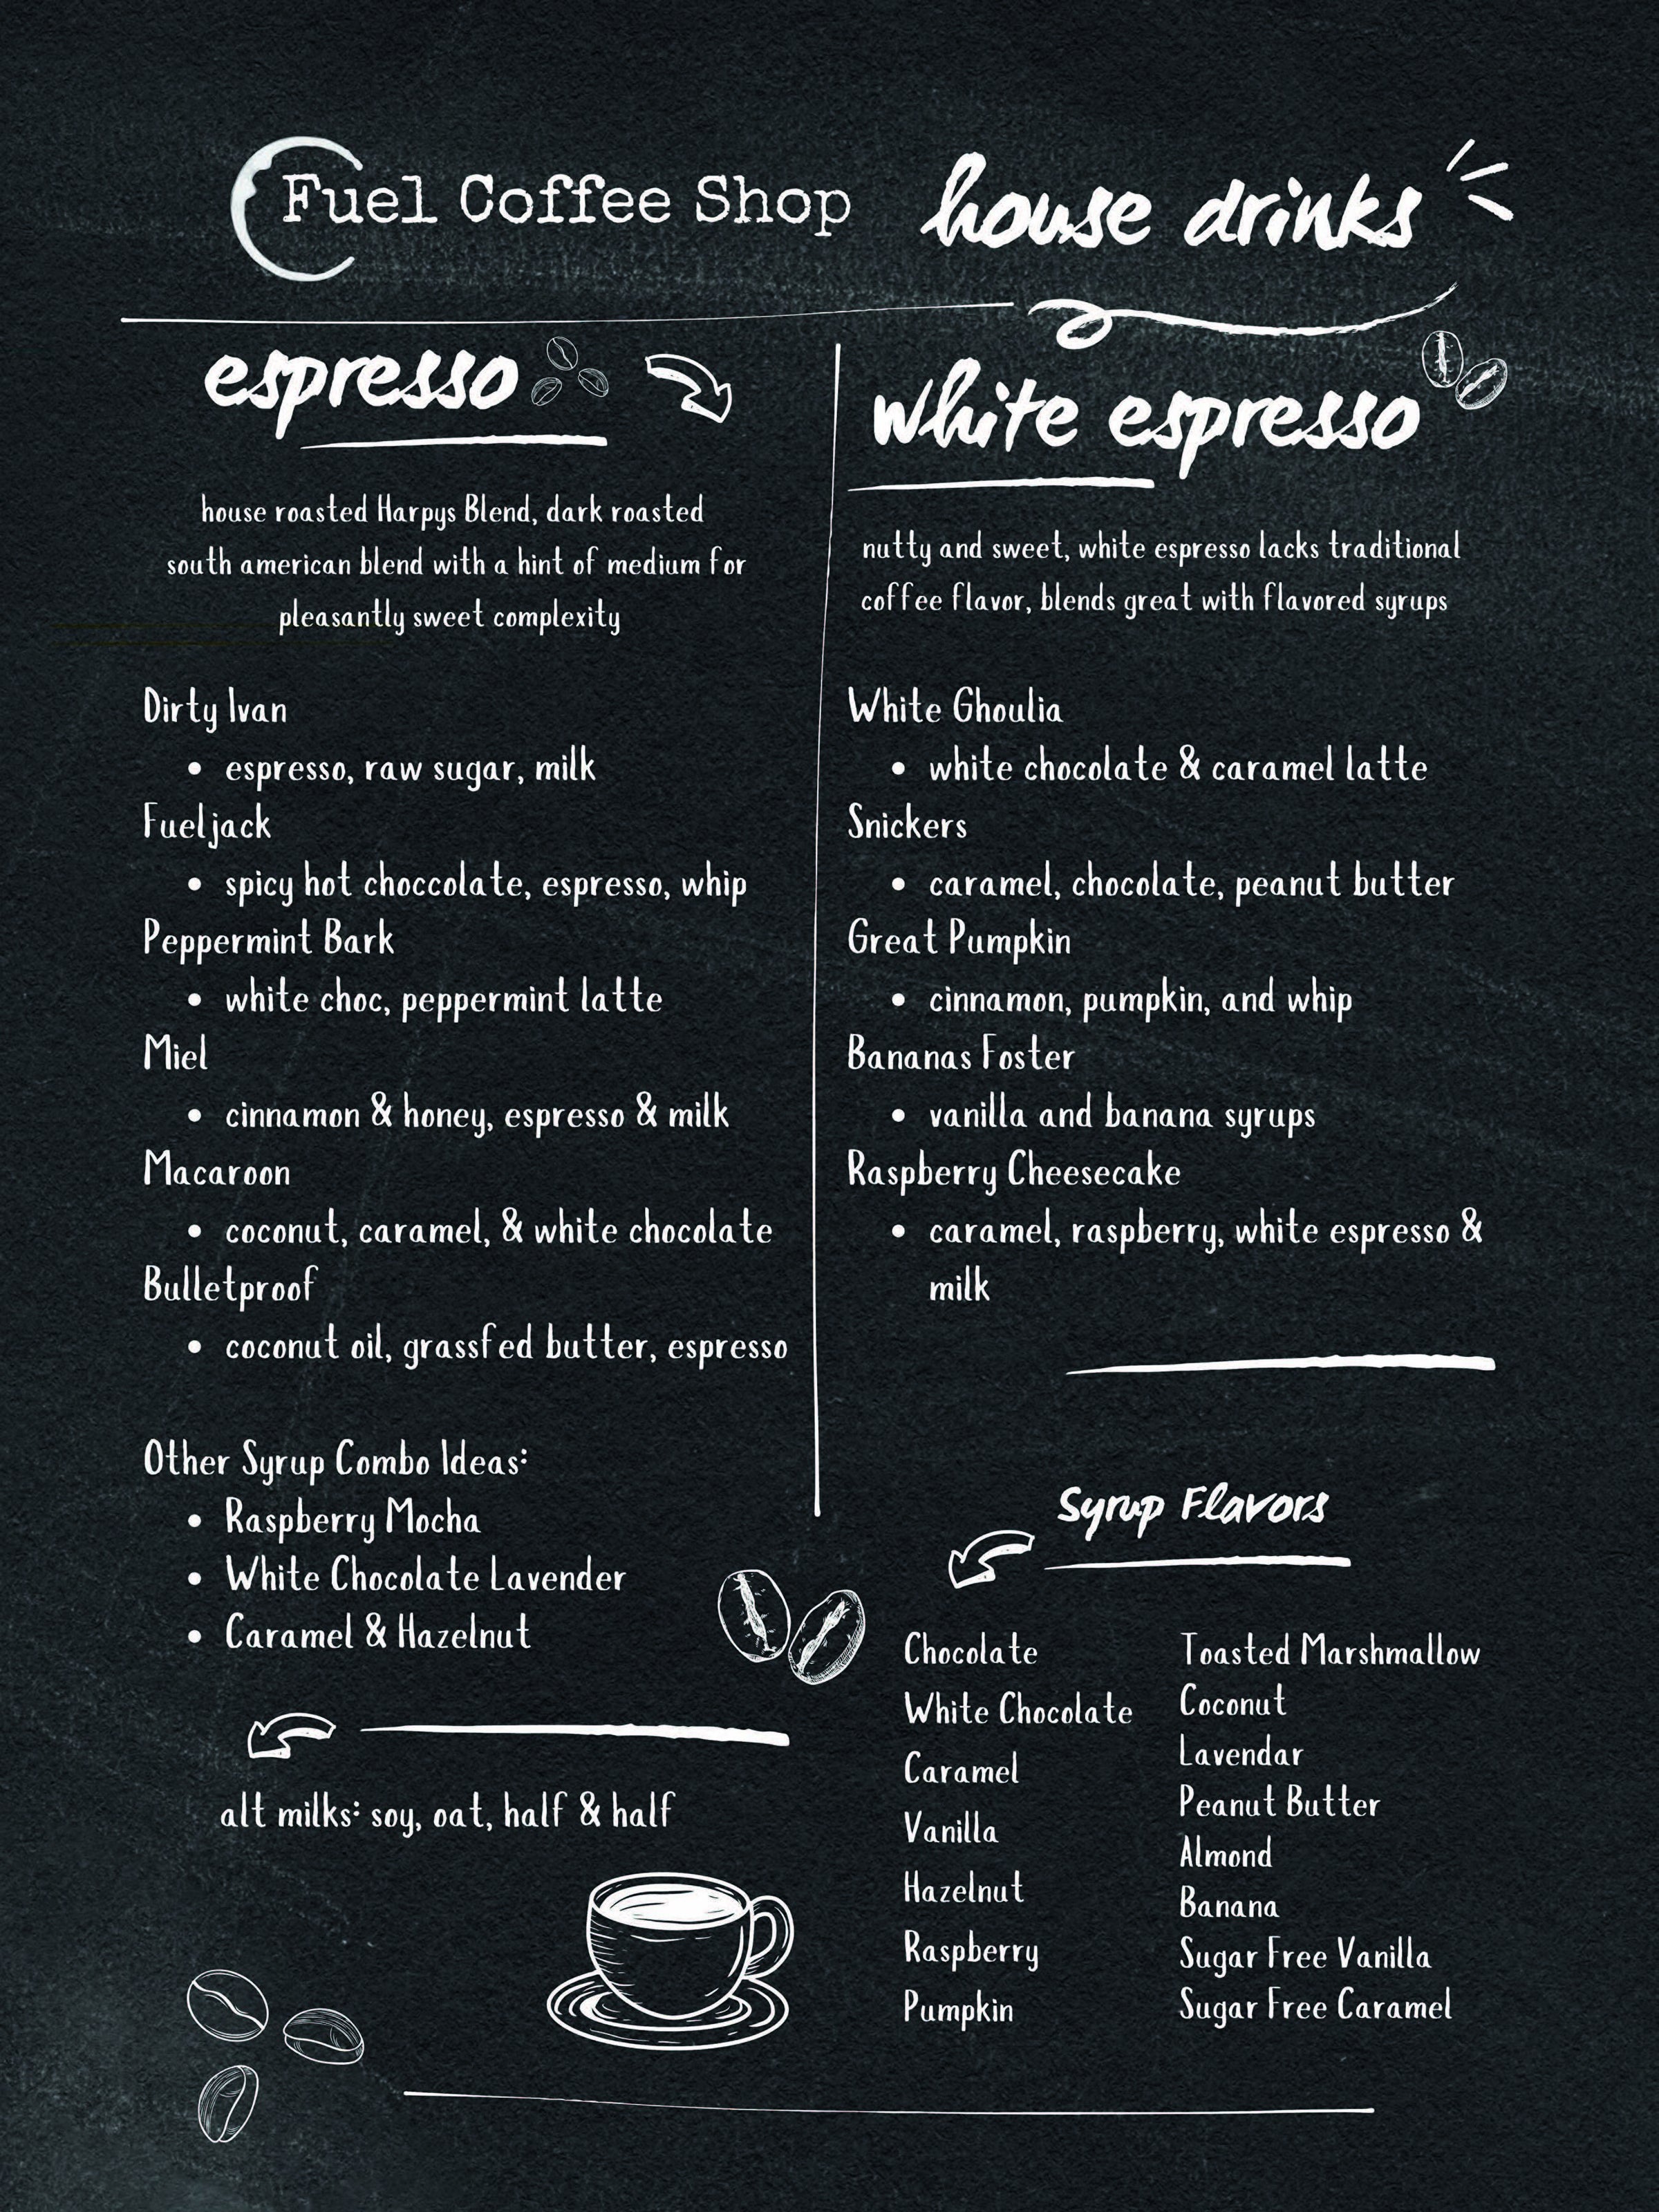 Fuel Coffee Shop
house drinks
espresso
house roasted Harpys Blend, dark roasted
south american blend with a hint of medium for
pleasantly sweet complexity
Dirty Ivan
• espresso, raw sugar, milk
Fueljack
• spicy hot choccolate, espresso, whip
Peppermint Bark
• white choc, peppermint latte
Miel
• cinnamon & honey, espresso & milk
Macaroon
• coconut, caramel, & white chocolate
Bulletproof
• coconut oil, grassfed butter, espresso
Other Syrup Combo Ideas:
• Raspberry Mocha
• White Chocolate Lavender
• Caramel & Hazelnut
alt milks: soy, oat, half & half
white espresso
nutty and sweet, white espresso lacks traditional
coffee flavor, blends great with flavored syrups
White Ghoulia
• white chocolate & caramel latte
Snickers
• caramel, chocolate, peanut butter
Great Pumpkin
• cinnamon, pumpkin, and whip
Bananas Foster
• vanilla and banana syrups
Raspberry Cheesecake
• caramel, raspberry, white espresso &
milk
Syrup Flavors
Chocolate
White Chocolate
Caramel
Vanilla
Hazelnut
Raspberry
Pumpkin
Toasted Marshmallow
Coconut
Lavendar
Peanut Butter
Almond
Banana
Sugar Free Vanilla
Sugar Free Caramel